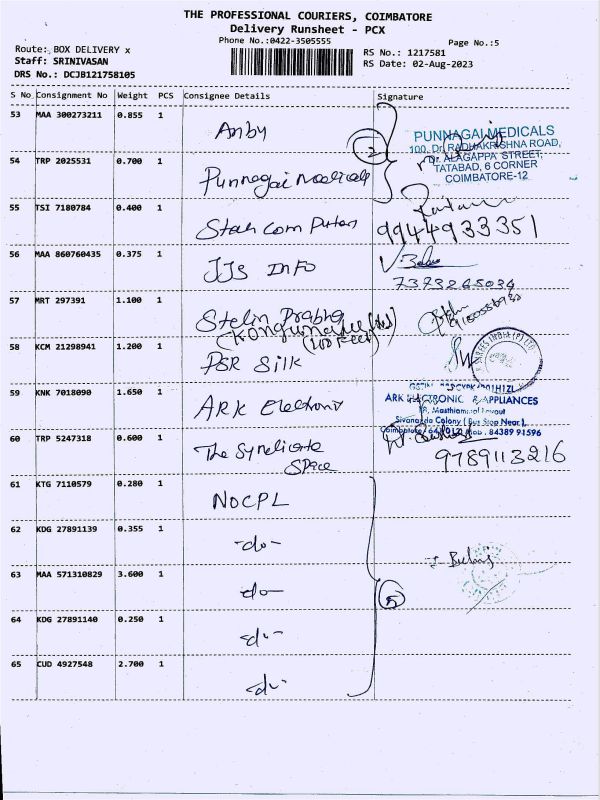 THE PROFESSIONAL COURIERS, COIMBATORE
Delivery Runsheet - PCX
Phone No.:0422-3505555
Page No.:5
Route: BOX DELIVERY x
RS No.: 1217581
Staff: SRINIVASAN
RS Date: 02-Aug-2023
DRS No.: DCJB121758105
S No Consignment No Weight PCS Consignee Details Signature
53 MAA 300273211 0.855 1 Anby
2
PUNNAGAI MEDICALS
100, Dr. RADHAKRISHNA ROAD,
Dr. ALAGAPPA STREET,
TATABAD, 6 CORNER
COIMBATORE-12
54 TRP 2025531 0.700 1 Punnagai Medicals
55 TSI 7180784 0.400 1 Star Com Puters 9944933351
56 MAA 860760435 0.375 1 JJs INFO
7373265034
57 MRT 297391 1.100 1 Stelin Prabha
(100 Feet)
58 KCM 21298941 1.200 1 PSR Silk
59 KNK 7018090 1.650 1 ARK Electroni
ARK ELECTRONIC & APPLIANCES
Sivananda Colony ( Bus Stop Near ),
Coimbatore - 641012. Mob : 84389 91596
60 TRP 5247318 0.600 1 The Syndicate
Space
9789113216
61 KTG 7110579 0.280 1 NOCPL
62 KDG 27891139 0.355 1 -do-
63 MAA 571310829 3.600 1 -do-
5
64 KDG 27891140 0.250 1 -do-
65 CUD 4927548 2.700 1 -do-